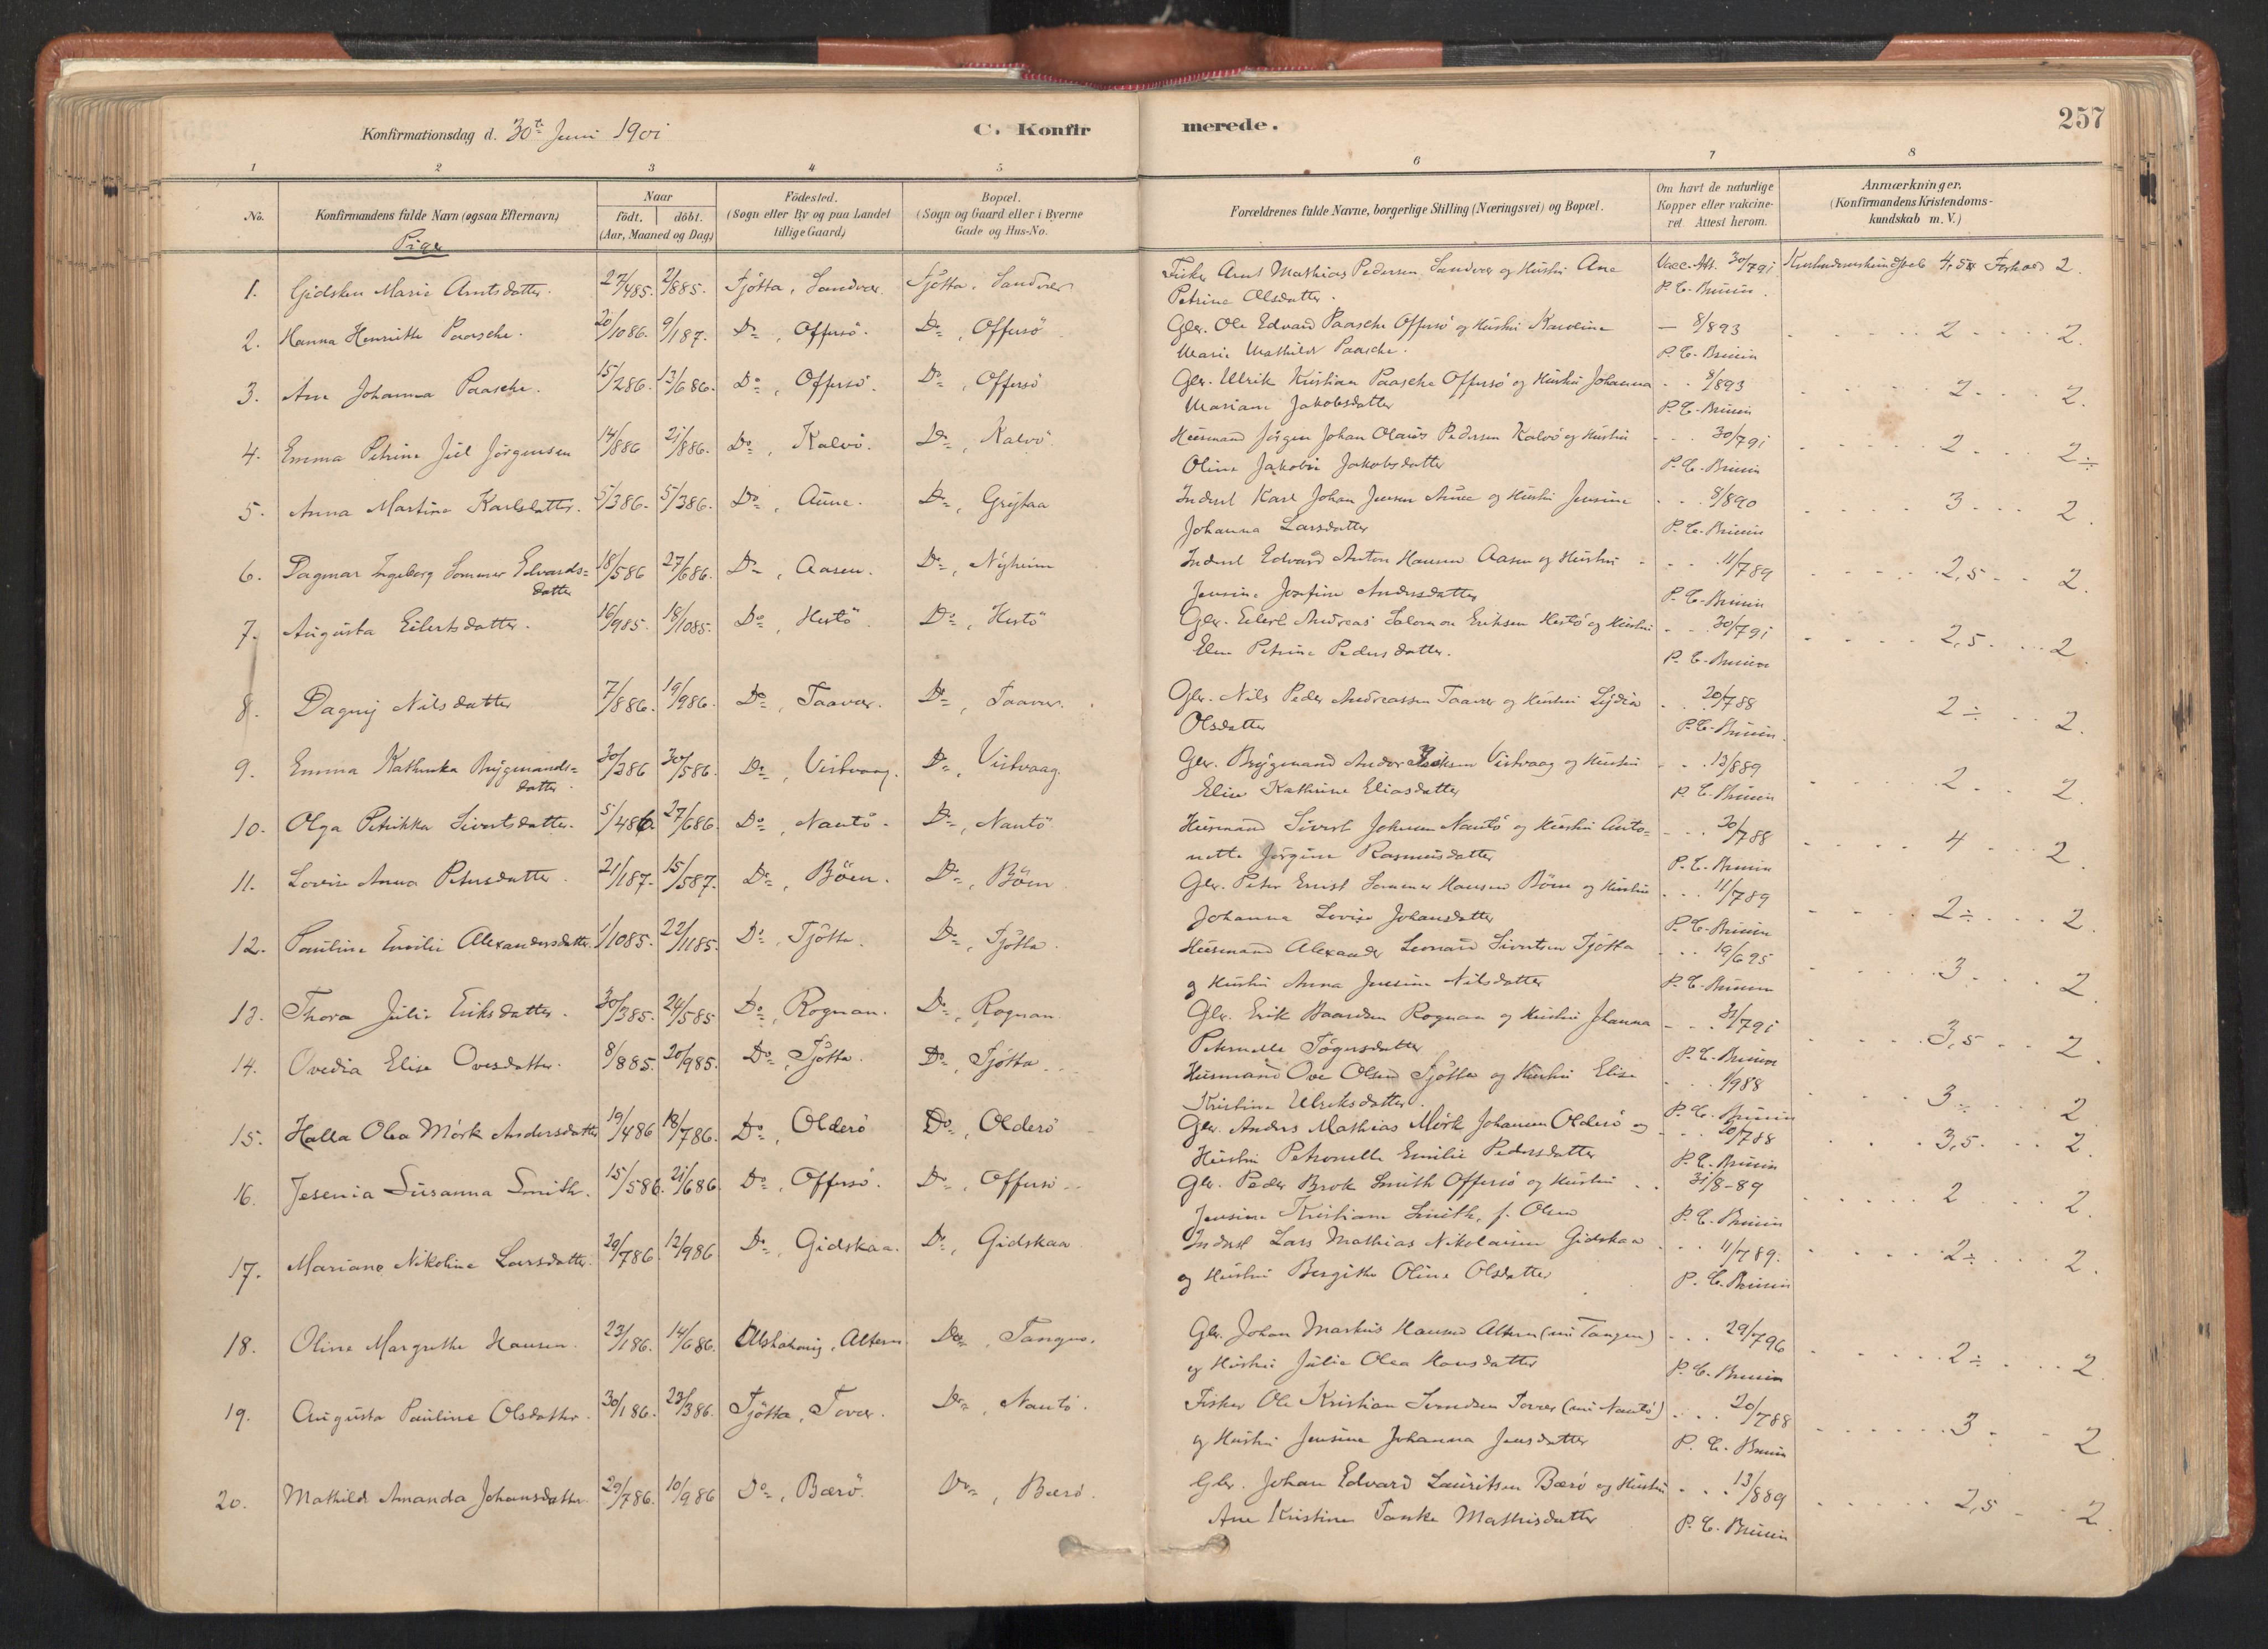 Konfirmationsdag d. 30te Juni 1901
C. Konfirmerede.
257
1 2 3 4 5 6 7 8
No.
Konfirmandens fulde Navn (ogsaa Efternavn)
Naar
födt. döbt.
(Aar, Maaned og Dag)
Födested.
(Sogn eller By og paa Landet
tillige Gaard)
Bopæl.
(Sogn og Gaard eller i Byerne
Gade og Hus-No.
Forældrenes fulde Navne, borgerlige Stilling (Næringsvei) og Bopæl.
Om havt de naturlige
Kopper eller vakcine-
ret Attest herom.
Anmærkninger.
(Konfirmandens Kristendoms-
kundskab m. V.)
Piger
1. Gidsken Marie Arntsdatter. 27/485. 2/885. Tjötta, Sandvær Tjötta, Sandvær Fisker Arnt Mathias Pedersen Sandvær og Hustru Ane Vacc. Att. 30/791 Kristendomskundskab 4,5 Forhold 2.
Petrine Olsdatter. P. C. Bruun.
2. Hanna Henriette Paasche. 20/1086. 9/187. Do, Offersö. Do, Offersö Gbr. Ole Edvard Paasche Offersö og Hustru Karoline — 8/893 2 2.
Marie Mathilde Paasche. P. C. Bruun
3. Ane Johanna Paasche. 15/286. 13/686. Do, Offersö. Do, Offersö Gbr. Ulrik Kristian Paasche Offersö og Hustru Johanna 8/893 2 2.
Mariane Jakobsdatter P. C. Bruun
4. Emma Petrine Juel Jörgensen 14/886 21/886. Do, Kalvö. Do, Kalvö. Husmand Jörgen Johan Olaus Pedersen Kalvö og Hustru 30/791 2 2÷
Oline Jakobie Jakobsdatter P. C. Bruun
5. Anna Martine Karlsdatter. 5/386. 5/386. Do, Aune. Do, Grytaa Inderst Karl Johan Jensen Aune og Hustru Jensine 8/890 3 2.
Johanna Larsdatter P. C. Bruun
6. Dagmar Ingeborg Sommer Edvards= 18/586 27/686. Do, Aasen. Do, Nyheim Inderst Edvard Anton Hansen Aasen og Hustru 11/789 2,5 2.
datter Jensine Josefine Andersdatter P. C. Bruun
7. Augusta Eilertsdatter. 16/985. 18/1085. Do, Hestö Do, Hestö Gbr. Eilert Andreas Salomon Eriksen Hestö og Hustru 30/791 2,5 2.
Elen Petrine Pedersdatter. P. C. Bruun
8. Dagny Nilsdatter 7/886. 19/986. Do, Taavær. Do, Taavær. Gbr. Nils Peder Andreassen Taavær og Hustru Lydia 20/788 2÷ 2.
Olsdatter P. C. Bruun.
9. Emma Kathinka Brygmands= 30/386 30/586. Do, Vistvaag. Do, Vistvaag. Gbr. Brygmand Andor Vistvaag og Hustru 13/889 2 2.
datter. Elise Kathrine Eliasdatter P. C. Bruun
10. Olga Petrikka Sivertsdatter. 5/486. 27/686. Do, Nautö. Do, Nautö. Husmand Sivert Johnsen Nautö og Hustru Anto= 20/788 4 2.
nette Jörgine Rasmusdatter P. C. Bruun
11. Lovise Anna Petersdatter. 21/187. 15/587. Do, Böen. Do, Böen Gbr. Peter Ernst Sommer Hansen Böen og Hustru 11/789 2÷ 2.
Johanna Lovise Johansdatter P. C. Bruun
12. Pauline Emilie Alexandersdatter. 1/1085. 22/1185. Do, Tjötta. Do, Tjötta. Husmand Alexander Leonard Sivertsen Tjötta 19/695 3 2.
og Hustru Anna Jensine Nilsdatter P. C. Bruun
13. Thora Julie Eriksdatter. 30/385. 24/585 Do, Rognan. Do, Rognan. Gbr. Erik Baardsen Rognan og Hustru Johanna 31/791 3,5 2.
Petrnelle Tögersdatter P. C. Bruun
14. Ovedia Elise Ovesdatter. 8/885. 20/985. Do, Tjötta. Do, Tjötta. Husmand Ove Olsen Tjötta og Hustru Elise 1/988 3÷ 2
Kristine Ulriksdatter. P. C. Bruun
15. Halla Olea Mörk Andersdatter 19/486 18/786. Do, Olderö Do, Olderö Gbr. Anders Mathias Mörk Johansen Olderö og 20/788 3,5 2.
Hustru Petronelle Emilie Pedersdatter P. C. Bruun
16. Jesenia Susanna Smith. 15/586. 21/686. Do, Offersö. Do, Offersö Gbr. Peder Brok Smith Offersö og Hustru 31/8-89 2 2.
Jensine Kristiane Smith, f. Olsen P. C. Bruun
17. Mariane Nikoline Larsdatter. 29/786. 12/986 Do, Gidskaa. Do, Gidskaa Inderst Lars Mathias Nikolaisen Gidskaa 11/789. 2÷ 2.
og Hustru Bergithe Oline Olsdatter P. C. Bruun
18. Oline Margrethe Hansen. 23/186. 14/686. Alstahoug, Altern. Do, Tangen. Gbr. Johan Markus Hansen Altern (nu Tangen) 29/796 2÷ 2.
og Hustru Julie Olea Hansdatter P. C. Bruun
19. Augusta Pauline Olsdatter. 30/186. 23/386. Tjötta, Tovær. Do, Nautö. Fisker Ole Kristian Svendsen Torvær (nu Nautö) 20/788 3 2.
og Hustru Jensine Johanna Jensdatter P. C. Bruun
20. Mathilde Amanda Johansdatter. 29/786. 10/986 Do, Bærö. Do, Bærö. Gbr. Johan Edvard Lauritsen Bærö og Hustru 13/889 2,5 2.
Ane Kristine Tanke Mathisdatter P. C. Bruun